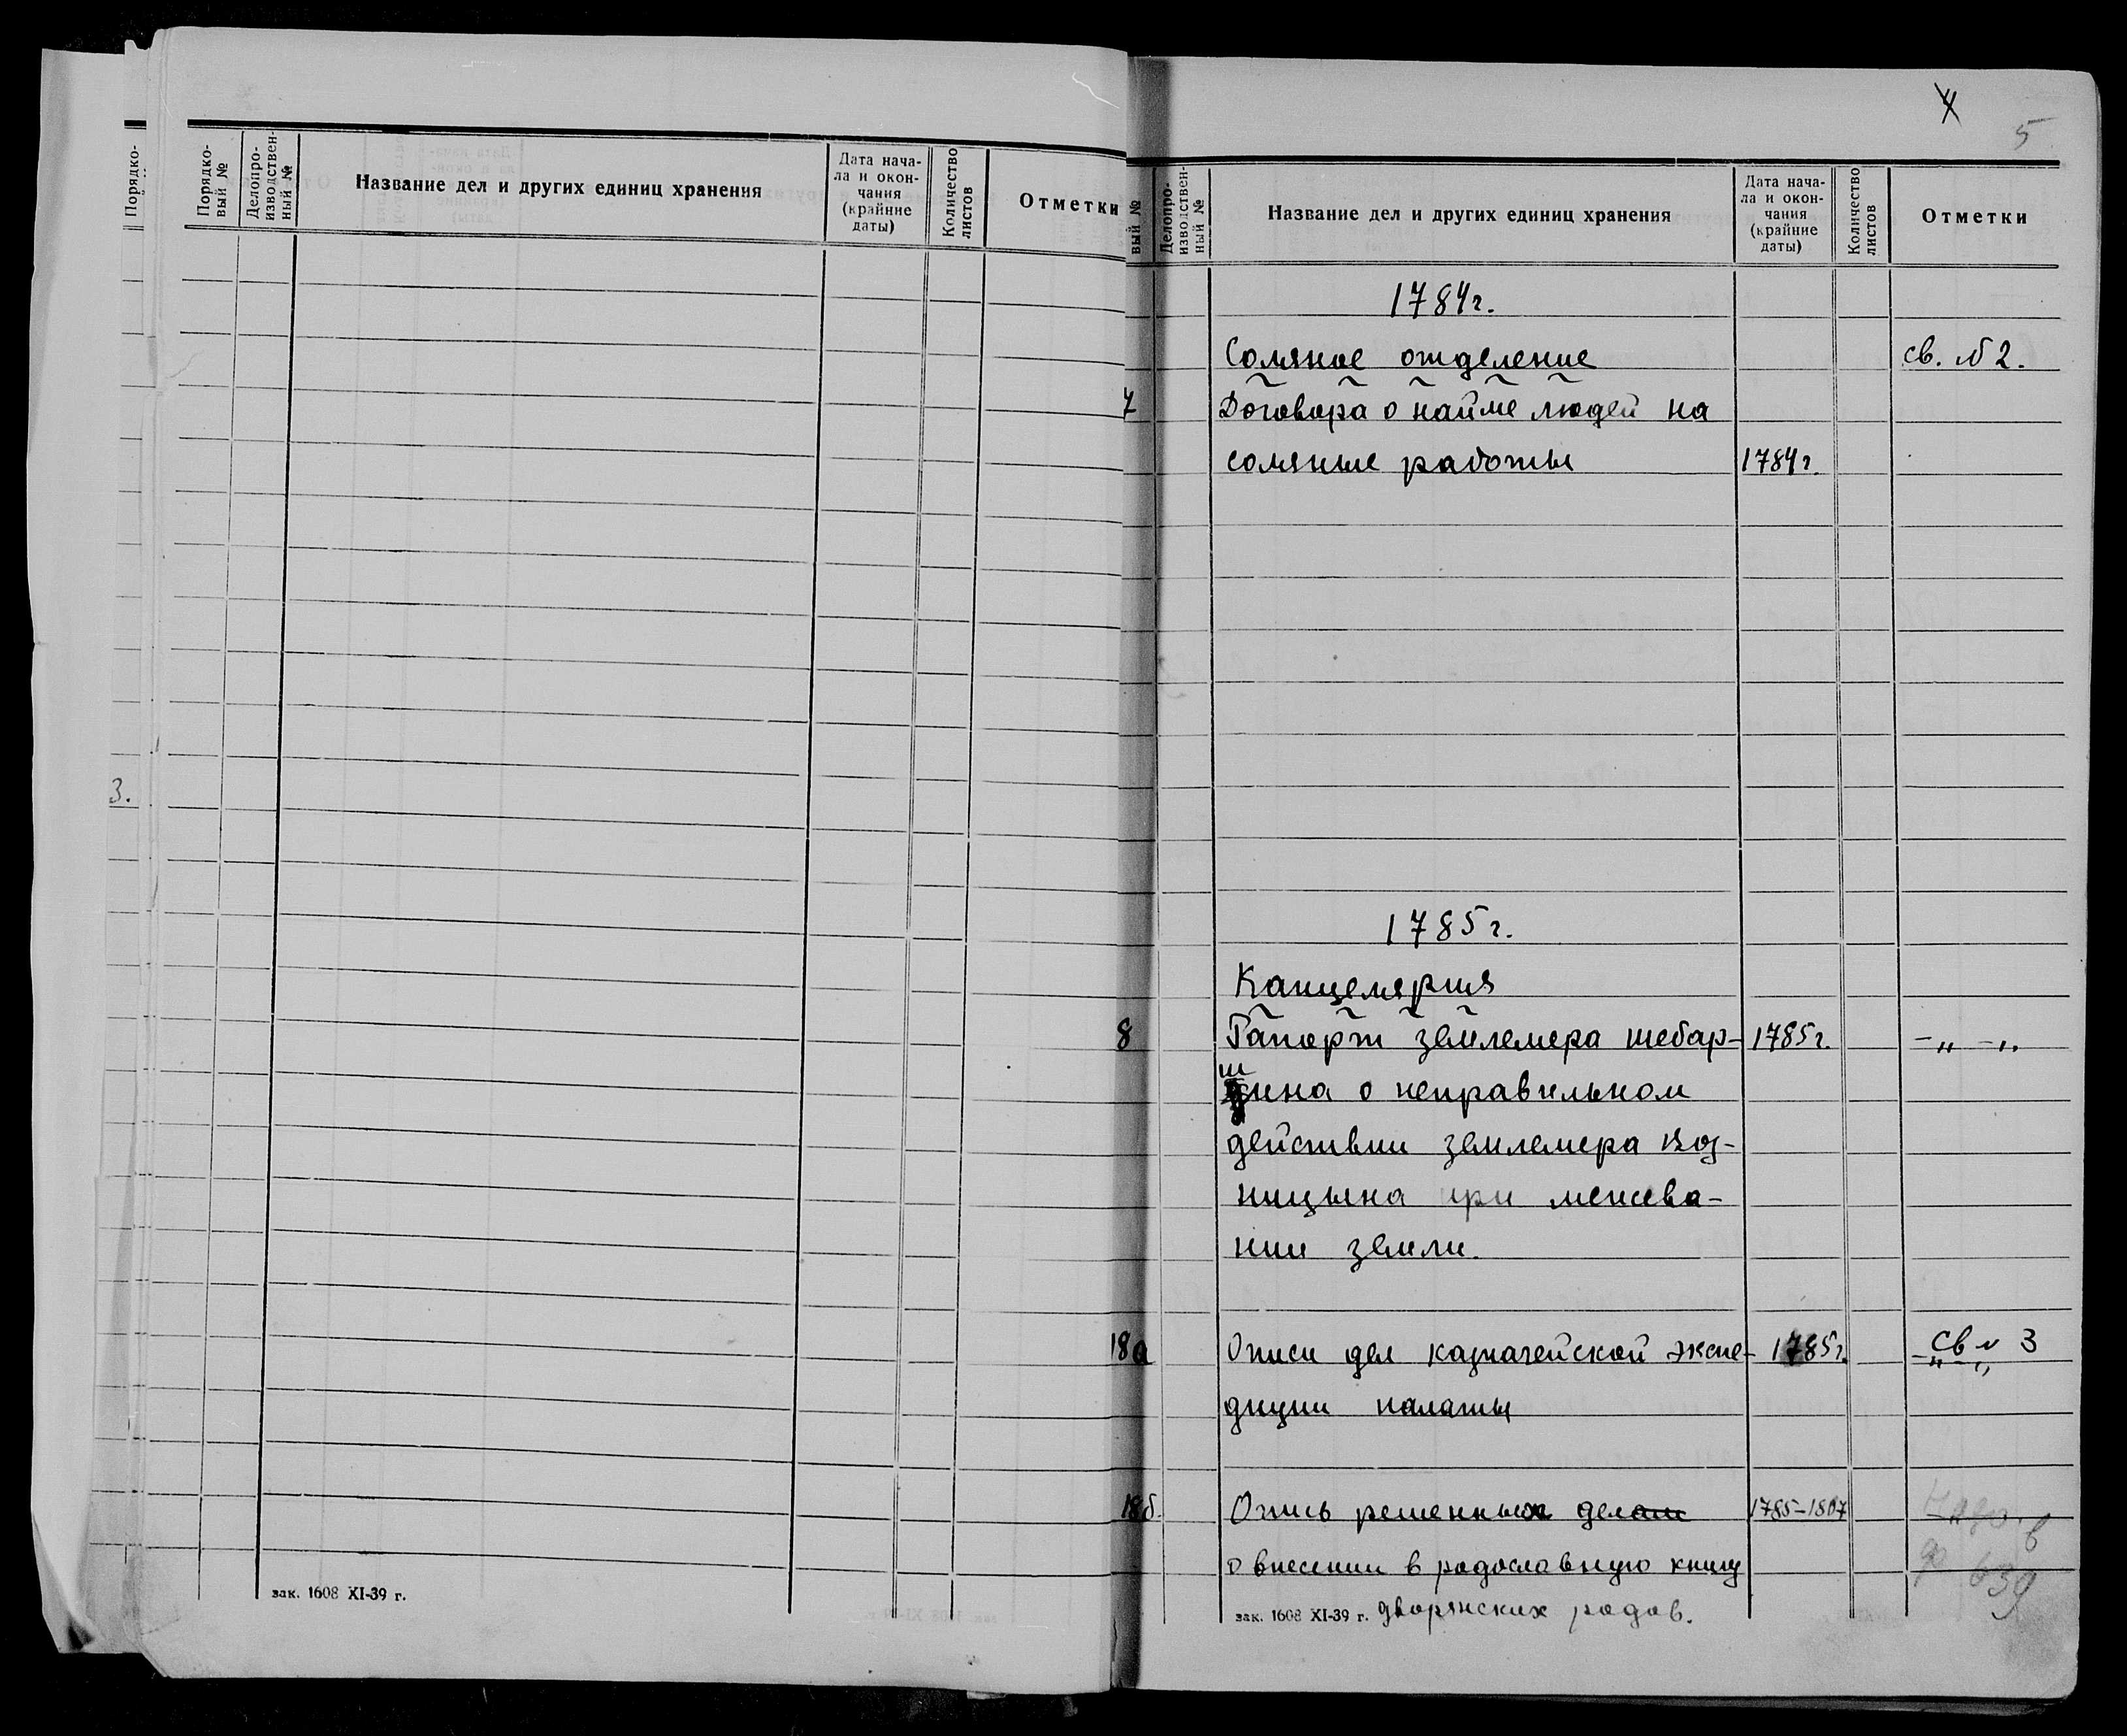 Порядко-
3.
Порядко-
вый №
Делопро-
изводствен-
ный №
Название дел и других единиц хранения
Дата нача-
ла и окон-
чания
(крайние
даты)
Количество
листов
Отметки
зак. 1608 XI-39 г.
4
5
вый №
Делопро-
изводствен-
ный №
Название дел и других единиц хранения
Дата нача-
ла и окон-
чания
(крайние
даты)
Количество
листов
Отметки
1784г.
Соляное отделение св. № 2.
7 Договора о найме людей на
соляные работы 1784г.
1785г.
Канцелярия
8 Рапорт землемера шебар- 1785г. -„ -„
шина о неправильном
действии землемера Воз-
ницына при межева-
нии земли.
18а Описи дел казначейской экспе- 1785г. св № 3
диции палаты
18б. Опись решенных делам 1785-1807
о внесении в родославную книгу
зак. 1608 XI-39 г. дворянских родов.